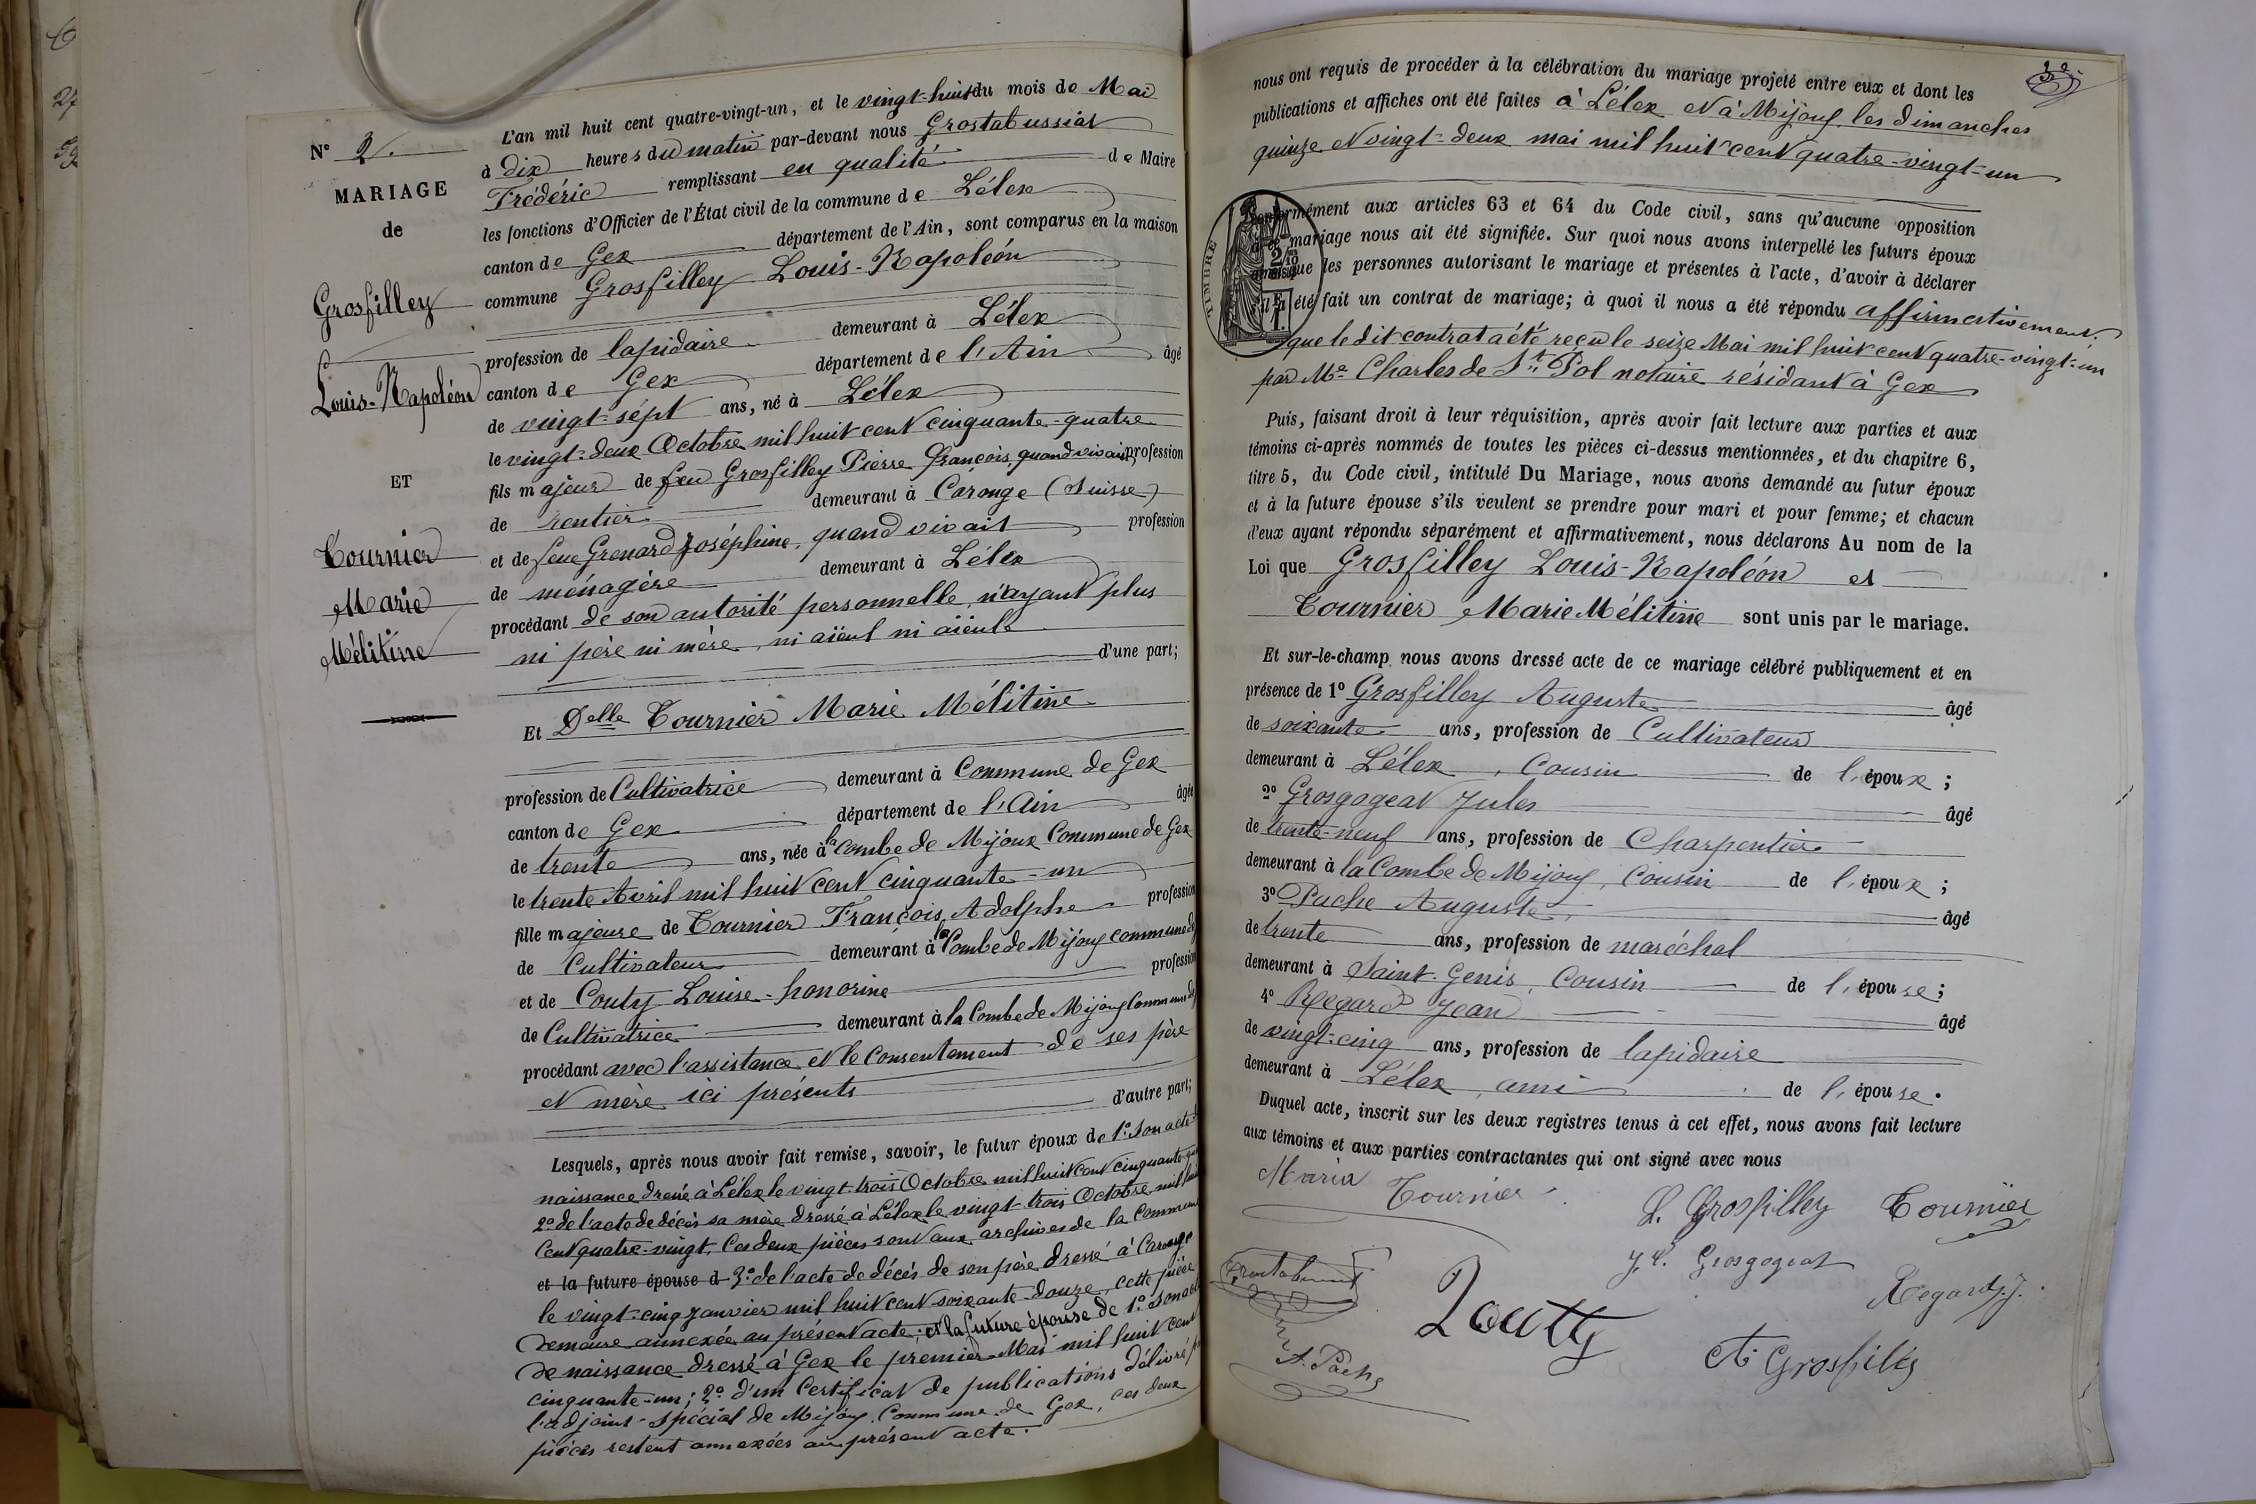 N° 2.
MARIAGE
de
Grosfilley
Louis-Napoléon
ET
Tournier
Marie
Mélitine
L'an mil huit cent quatre-vingt-un, et le vingt-huit du mois de Mai
à dix heures du matin par-devant nous Grostabussiat
Frédéric remplissant en qualité de Maire
les fonctions d'Officier de l'État civil de la commune de Lélex
canton de Gex département de l'Ain, sont comparus en la maison
commune Grosfilley Louis-Napoléon
profession de lapidaire demeurant à Lélex
canton de Gex département de l'Ain âgé
de vingt-sept ans, né à Lélex
le vingt-deux Octobre mil huit cent cinquante-quatre
fils majeur de feu Grosfilley Pierre François, quand vivait profession
de rentier demeurant à Carouge (Suisse)
et de feue Grenard Joséphine, quand vivait profession
de ménagère demeurant à Lélex
procédant de son autorité personnelle, n'ayant plus
ni père ni mère, ni aïeul ni aïeule
d'une part;
Et Delle Tournier Marie Mélitine
profession de Cultivatrice demeurant à Commune de Gex
canton de Gex département de l'Ain âgée
de trente ans, née à la Combe de Mijoux Commune de Gex
le trente Avril mil huit cent cinquante-un
fille majeure de Tournier François Adolphe profession
de Cultivateur demeurant à la Combe de Mijoux commune de
et de Couty Louise-honorine profession
de Cultivatrice demeurant à la Combe de Mijoux Commune de
procédant avec l'assistance et le consentement de ses père
et mère ici présents
d'autre part;
Lesquels, après nous avoir fait remise, savoir, le futur époux de 1° Son acte de
naissance dressé à Lélex le vingt-trois Octobre mil huit cent cinquante
2° de l'acte de décès sa mère dressé à Lélex le vingt-trois Octobre mil huit
Cent quatre-vingt, Ces deux pièces sont aux archives de la Commune
et la future épouse d 3° de l'acte de décès de son père dressé à Carouge
le vingt-cinq Janvier mil huit cent soixante-douze, cette pièce
demeure annexée au présent acte; et la future épouse de 1° son acte
de naissance dressé à Gex le premier Mai mil huit cent
cinquante-un; 2° d'un Certificat de publications délivré
l'adjoint-spécial de Mijoux Commune de Gex, ces deux
pièces restent annexées au présent acte.
nous ont requis de procéder à la célébration du mariage projeté entre eux et dont les
publications et affiches ont été faites à Lélex et à Mijoux les dimanches
quinze et vingt-deux mai mil huit cent quatre-vingt-un
TIMBRE
Conformément aux articles 63 et 64 du Code civil, sans qu'aucune opposition
à ce mariage nous ait été signifiée. Sur quoi nous avons interpellé les futurs époux
ainsi que les personnes autorisant le mariage et présentes à l'acte, d'avoir à déclarer
s'il a été fait un contrat de mariage; à quoi il nous a été répondu affirmativement
que le dit contrat a été reçu le seize Mai mil huit cent quatre-vingt-un
par Me Charles de St Pol notaire résidant à Gex
Puis, faisant droit à leur réquisition, après avoir fait lecture aux parties et aux
témoins ci-après nommés de toutes les pièces ci-dessus mentionnées, et du chapitre 6,
titre 5, du Code civil, intitulé Du Mariage, nous avons demandé au futur époux
et à la future épouse s'ils veulent se prendre pour mari et pour femme; et chacun
d'eux ayant répondu séparément et affirmativement, nous déclarons Au nom de la
Loi que Grosfilley Louis-Napoléon et
Tournier Marie Mélitine sont unis par le mariage.
Et sur-le-champ nous avons dressé acte de ce mariage célébré publiquement et en
présence de 1° Grosfilley Auguste âgé
de soixante ans, profession de Cultivateur
demeurant à Lélex, Cousin de l'époux;
2° Grosgogeat Jules âgé
de trente-neuf ans, profession de Charpentier
demeurant à la Combe de Mijoux, Cousin de l'époux;
3° Pache Auguste, âgé
de trente ans, profession de maréchal
demeurant à Saint-Genis, Cousin de l'épouse;
4° Regard Jean âgé
de vingt-cinq ans, profession de lapidaire
demeurant à Lélex, ami de l'épouse.
Duquel acte, inscrit sur les deux registres tenus à cet effet, nous avons fait lecture
aux témoins et aux parties contractantes qui ont signé avec nous
Maria Tournier
L. Grosfilley Tournier
Grosgogeat
Regard J.
Couty
A. Pache
A. Grosfilley